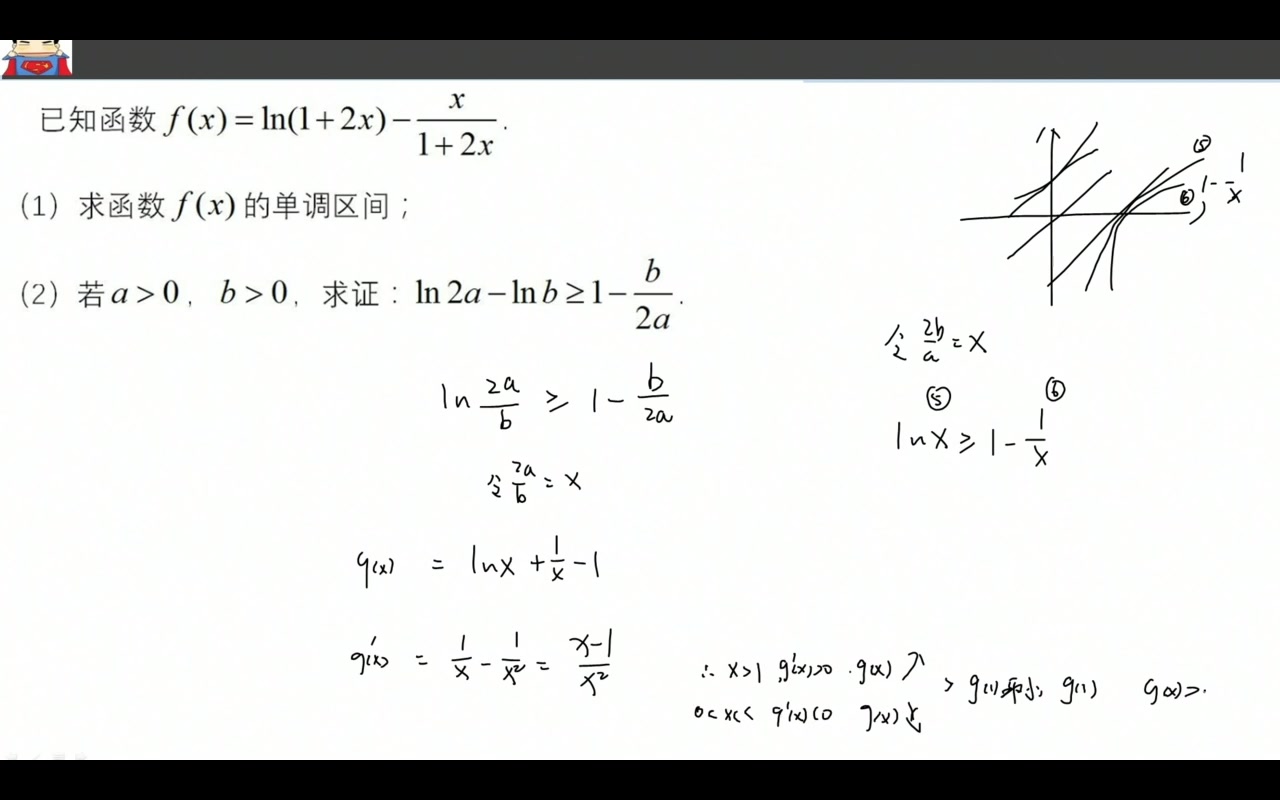 已知函数 f(x) = ln(1+2x) − x/(1+2x).
(1) 求函数 f(x) 的单调区间；
(2) 若 a > 0, b > 0, 求证：ln 2a − ln b ≥ 1 − b/2a.
⑤
⑥ 1 − 1/x
令 2b/a = x
⑤ ⑥
ln x ≥ 1 − 1/x
ln 2a/b ≥ 1 − b/2a
令 2a/b = x
g(x) = ln x + 1/x − 1
g'(x) = 1/x − 1/x² = x−1/x²
∴ x>1 g'(x)>0 g(x) ↗
0<x< g'(x)<0 g(x) ↓
> g(1) 小 g(1) g(x)≥